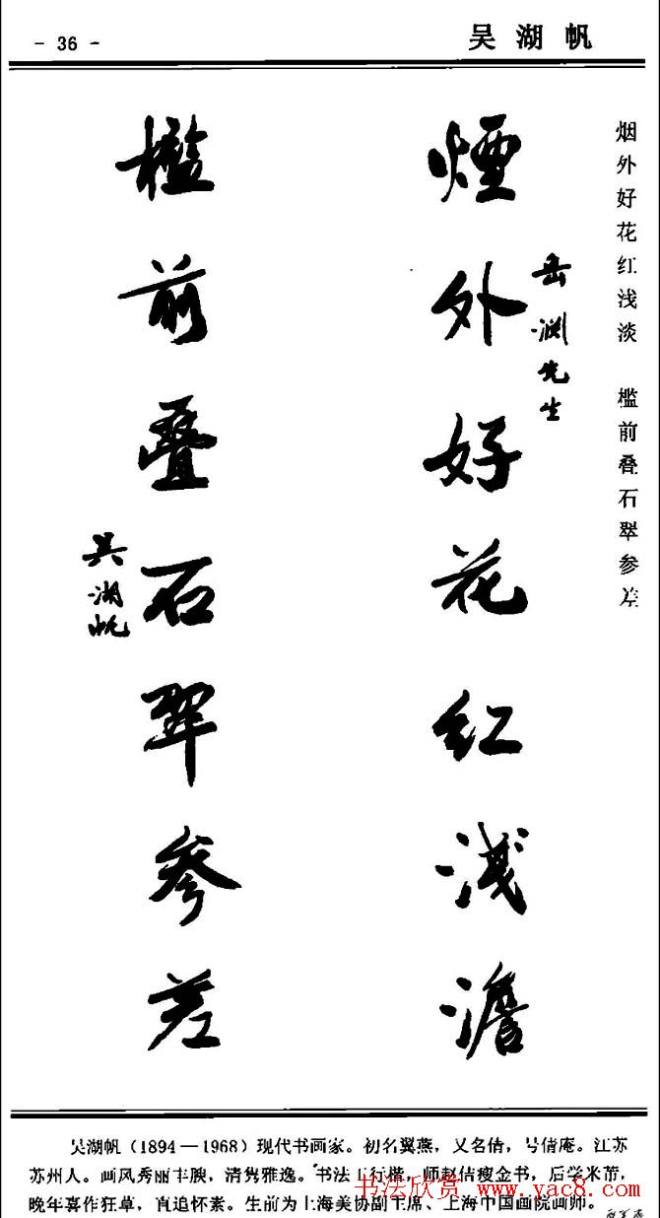 - 36 -
吴湖帆
烟外好花红浅淡 槛前叠石翠参差
岳渊先生
煙外好花红淺澹
槛前叠石翠参差
吴湖帆
吴湖帆（1894—1968）现代书画家。初名翼燕，又名倩，号倩庵。江苏
苏州人。画风秀丽丰腴，清隽雅逸。书法工行楷，师赵佶瘦金书，后学米芾，
晚年喜作狂草，直追怀素。生前为上海美协副主席、上海中国画院画师。
书法欣赏 www.yac8.com